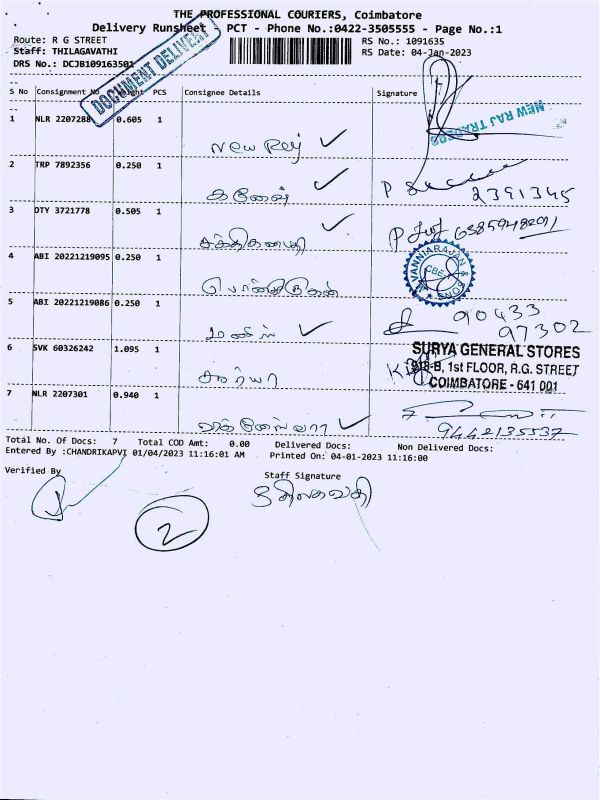 THE PROFESSIONAL COURIERS, Coimbatore
Delivery Runsheet PCT - Phone No.:0422-3505555 - Page No.:1
Route: R G STREET
RS No.: 1091635
Staff: THILAGAVATHI
RS Date: 04-Jan-2023
DRS No.: DCJB109163501
DOCUMENT DELIVERY
S No Consignment No Weight PCS Consignee Details Signature
1 NLR 2207288 0.605 1
New Raj
NEW RAJ TRADERS
2 TRP 7892356 0.250 1
கணேஷ் 2391345
3 OTY 3721778 0.505 1
சக்திகணபதி 6385948291
4 ABI 20221219095 0.250 1
VANNIARAJAN &
CBE
5 ABI 20221219086 0.250 1
90433
97302
6 SVK 60326242 1.095 1
சூர்யா
SURYA GENERAL STORES
918-B, 1st FLOOR, R.G. STREET
COIMBATORE - 641 001
7 NLR 2207301 0.940 1
9442135537
Total No. Of Docs: 7 Total COD Amt: 0.00 Delivered Docs: Non Delivered Docs:
Entered By :CHANDRIKAPVI 01/04/2023 11:16:01 AM Printed On: 04-01-2023 11:16:00
Verified By
Staff Signature
2